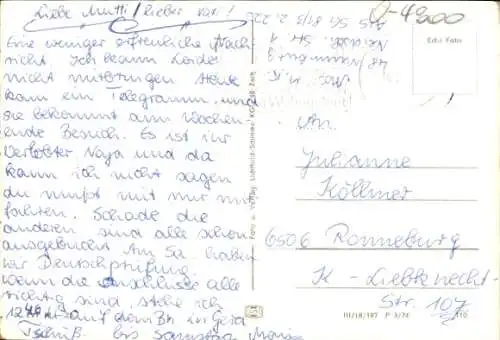 Liebe Mutti / lieber Vati!
Eine weniger erfreuliche Nach-
richt. Ich kann Leider
nicht mitbringen. Heute
kam ein Telegramm, und
sie bekommt am Wochen-
ende Besuch. Es ist ihr
Verlobter. Naja und da
kann ich nicht sagen
du mußt mit mir mit
fahren. Schade die
anderen sind alle schon
ausgebucht. Am Sa. hatten
wir Deutschprüfung.
Wenn die Anschlüsse alle
richtig sind, stehe ich
auf dem Bh in Gera
Tschüß bis Samstag
48 Naumburg
An
Julianne
Köllmer
6506 Ronneburg
K-Liebknecht-
Str. 107
III/18/197 P 3/74